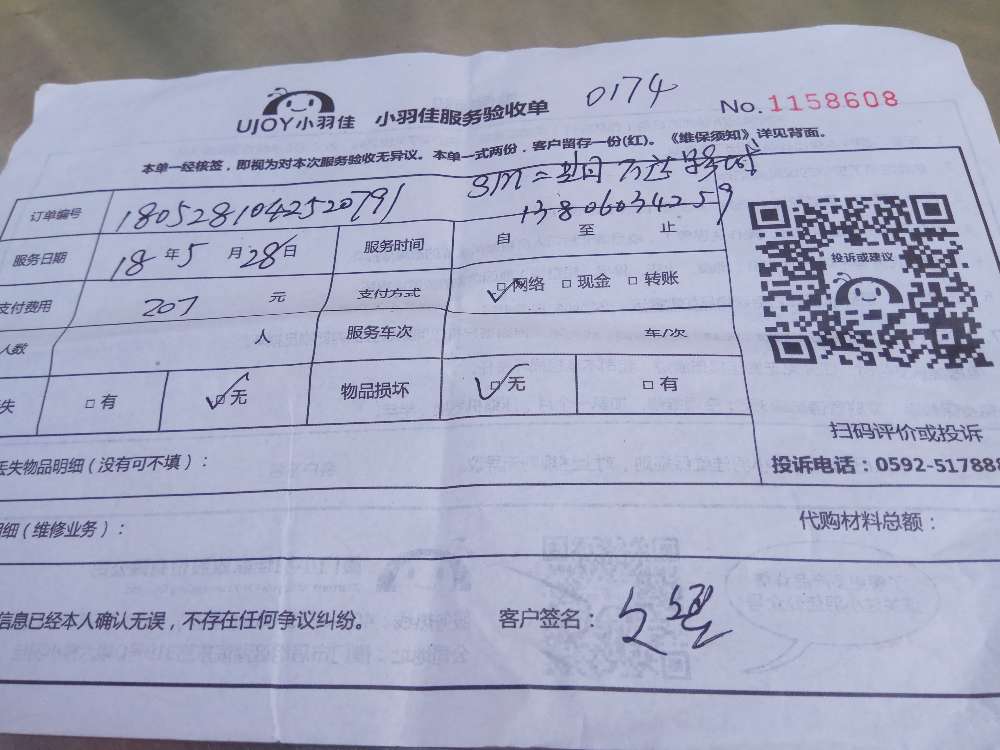 UJOY小羽佳 小羽佳服务验收单 0174 No.1158608
本单一经核签，即视为对本次服务验收无异议。本单一式两份，客户留存一份(红)。《维保须知》详见背面。
SM二期
13806034259
订单编号 1805281042520791
服务日期 18年5月28日 服务时间 自 至 止
支付费用 207 元 支付方式 ☑网络 □现金 □转账
人数 人 服务车次 车/次
失 □有 ☑无 物品损坏 ☑无 □有
投诉或建议
扫码评价或投诉
投诉电话：0592-517888
丢失物品明细（没有可不填）：
明细（维修业务）： 代购材料总额：
信息已经本人确认无误，不存在任何争议纠纷。 客户签名：